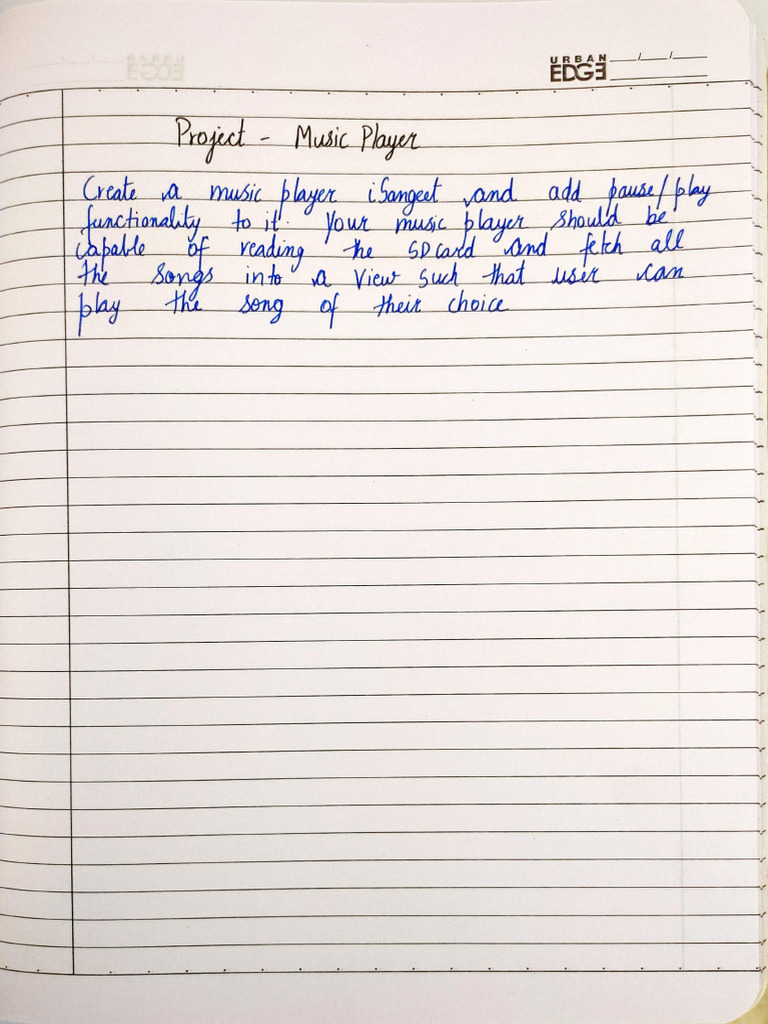 URBAN
EDGE
Project - Music Player
Create a music player iSangeet and add pause/play
functionality to it. Your music player should be
capable of reading the SD card and fetch all
the songs into a View such that user can
play the song of their choice